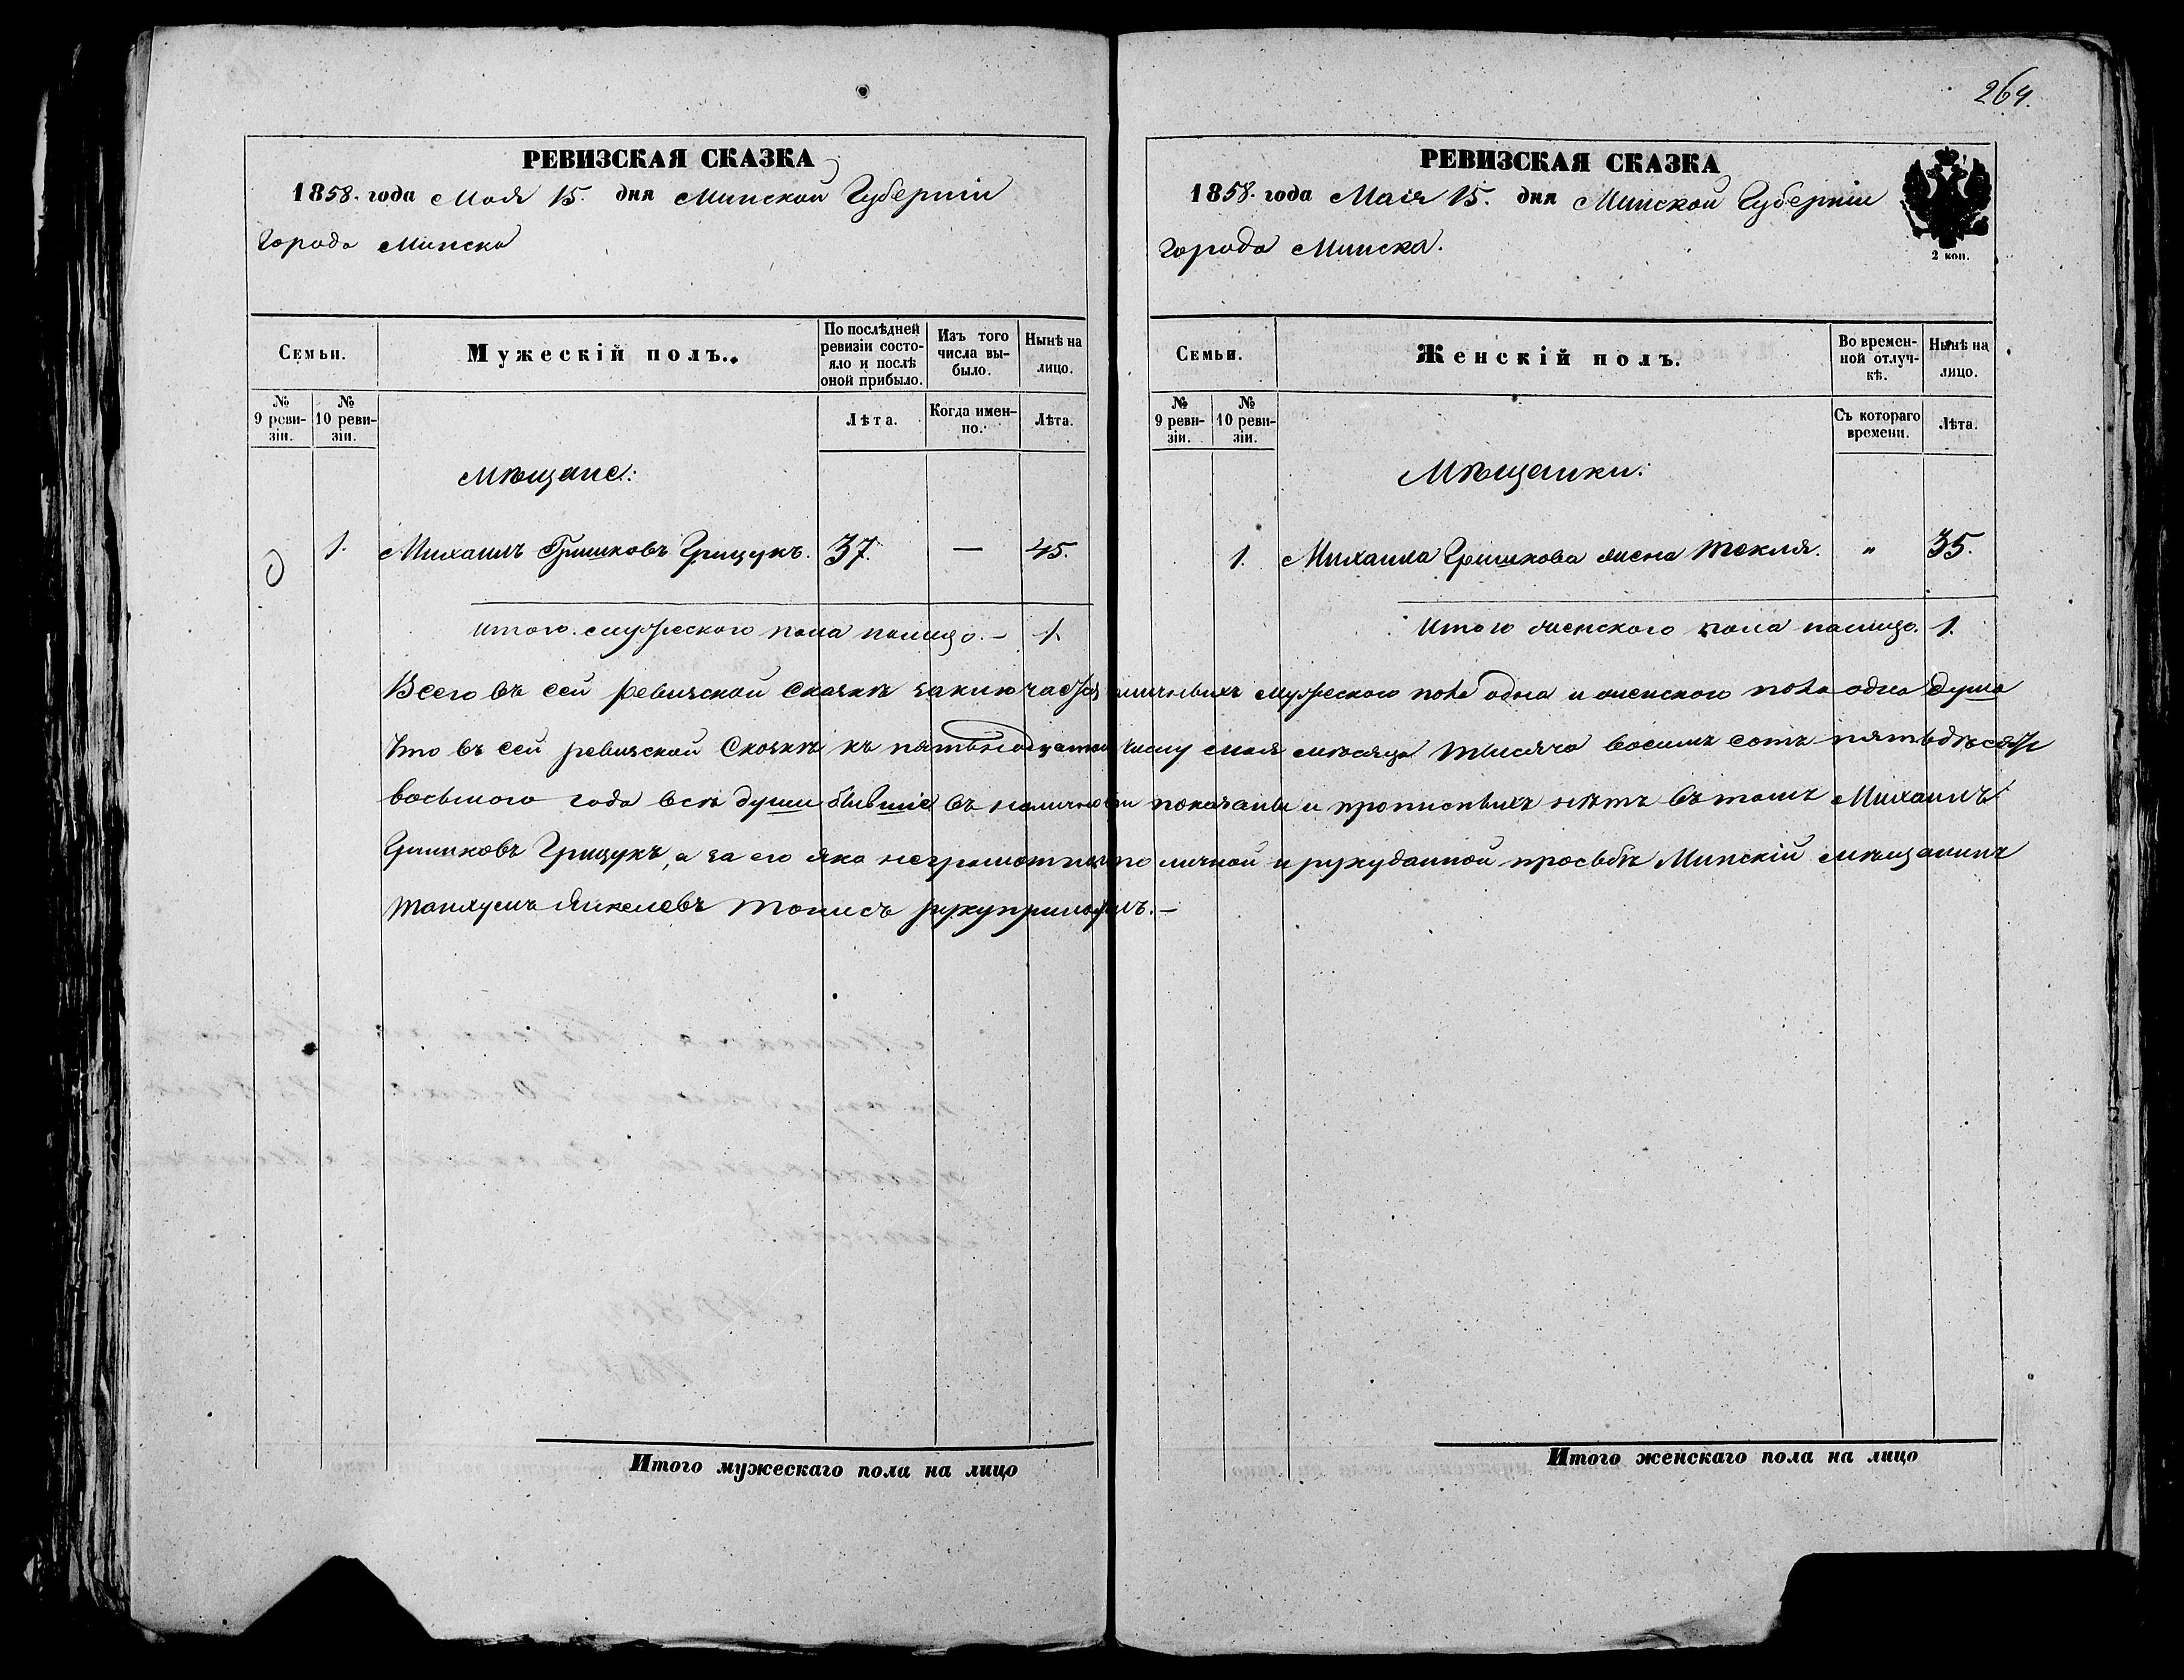 264.
РЕВИЗСКАЯ СКАЗКА
1858. года Мая 15. дня Минской Губерніи
города Минска
Семьи.
Мужескій полъ.
По послѣдней ревизіи состояло и послѣ оной прибыло.
Изъ того числа выбыло.
Нынѣ на лицо.
№ 9 ревизіи.
№ 10 ревизіи.
Лѣта.
Когда именно.
Лѣта.
Мѣщане:
1. Михаилъ Гришковъ Грицукъ. 37. — 45.
Итого мужеского пола налицо. — 1.
РЕВИЗСКАЯ СКАЗКА
1858. года Маія 15. дня Минской Губерніи
города Минска.
2 коп.
Семьи.
Женскій полъ.
Во временной отлучкѣ.
Нынѣ на лицо.
№ 9 ревизіи.
№ 10 ревизіи.
Съ котораго времени.
Лѣта.
Мѣщанки:
1. Михаила Гришкова жена Текля. „ 35.
Итого женского пола налицо. 1.
Всего въ сей ревизской сказкѣ заключается наличныхъ мужеского пола одна и женского пола одна душа
Что въ сей ревизской сказкѣ къ пятьнадцатому числу мая мѣсяца тысяча восимъ сотъ пятьдѣсятъ
восьмого года всѣ души бывшіе въ наличности показаны и прописныхъ нѣтъ въ томъ Михаилъ
Гришковъ Грицукъ, а за его яко неграмотны по личной и рукуданной просьбѣ Минскій мѣщанинъ
Янкелевъ рукуприложилъ. —
Итого мужескаго пола на лицо
Итого женскаго пола на лицо